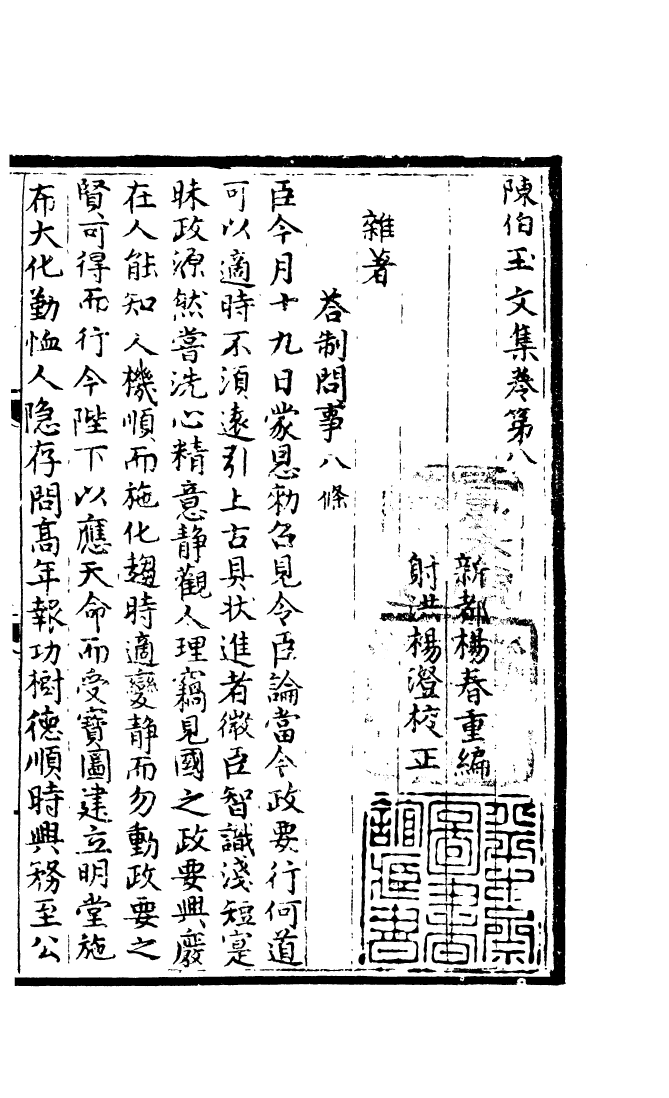 陳伯玉文集卷第八
新都楊春重編
射洪楊澄校正
雜著
荅制問事八條
臣今月十九日蒙恩勑召見令臣論當今政要行何道
可以適時不須遠引上古具状進者微臣智識淺短寔
昧政源然嘗洗心精意静觀人理竊見國之政要興廢
在人能知人機順而施化趨時適變静而勿動政要之
賢可得而行今陛下以應天命而受寶圖建立明堂施
布大化勤恤人隐存問髙年報功樹德順時興務至公